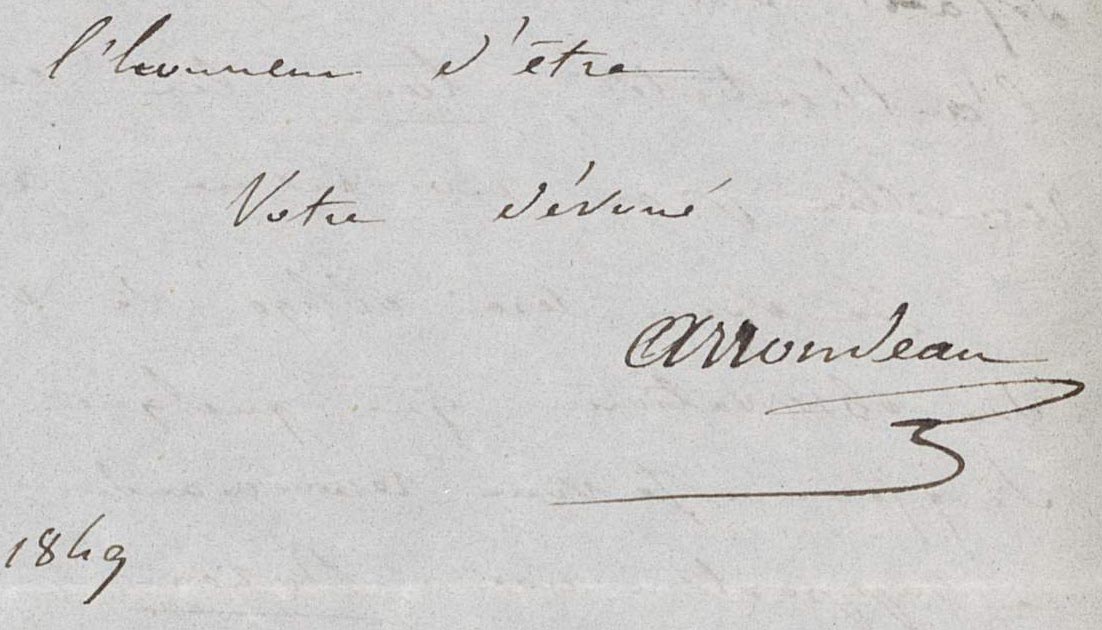 l'honneur d'être
Votre dévoué
Arrondeau
1849